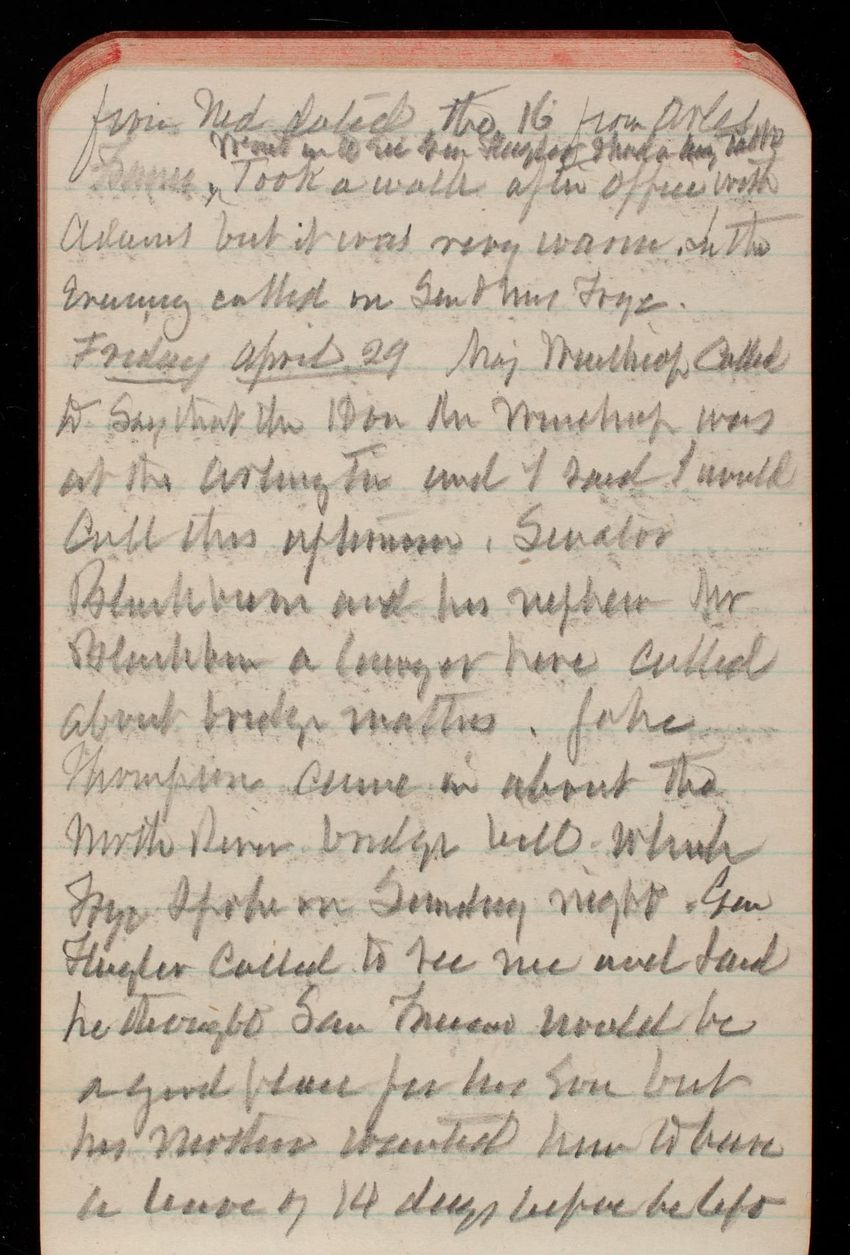 from Ned dated the 16 from Arles
Went in to see Gen Flagler & had a long talk
France. Took a walk after office with
Adams but it was very warm. In the
Evening called on Gen & Mrs Frye.
Friday April 29 Maj Winthrop Called
to Say that the Hon Mr Winthrop was
at the Arlington and I said I would
Call this afternoon. Senator
Blackburn and his nephew Mr
Blackburn a lawyer here called
about bridge matters. Jake
Thompson came in about the
North River bridge bill which
Frye spoke on Sunday night. Gen
Flagler Called to see me and said
he thought San Francisco would be
a good place for his Son but
his Mother wanted him to have
a leave of 14 days before he left